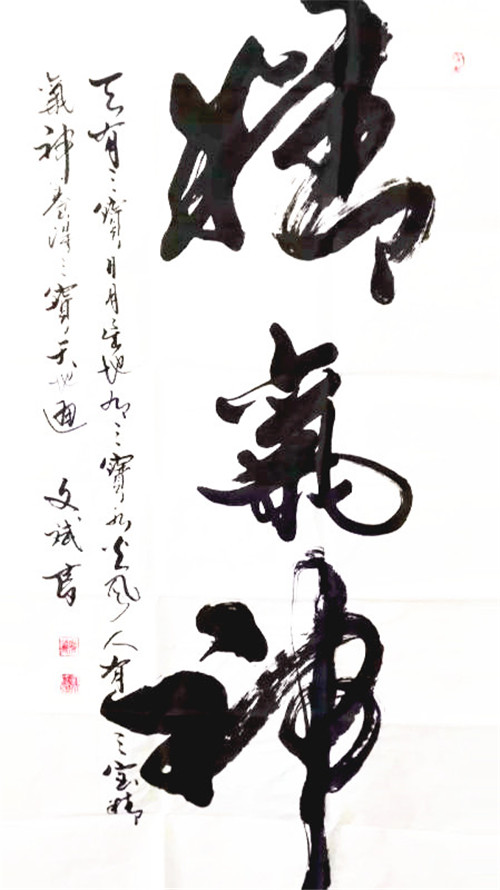 精氣神
天有三寶日月星地有三寶水火風人有三寶精
氣神養得三寶天地通
文斌書